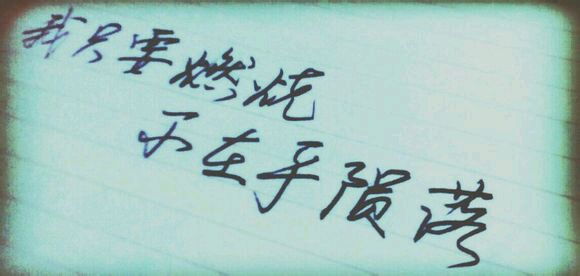 我只要燃烧
不在乎陨落